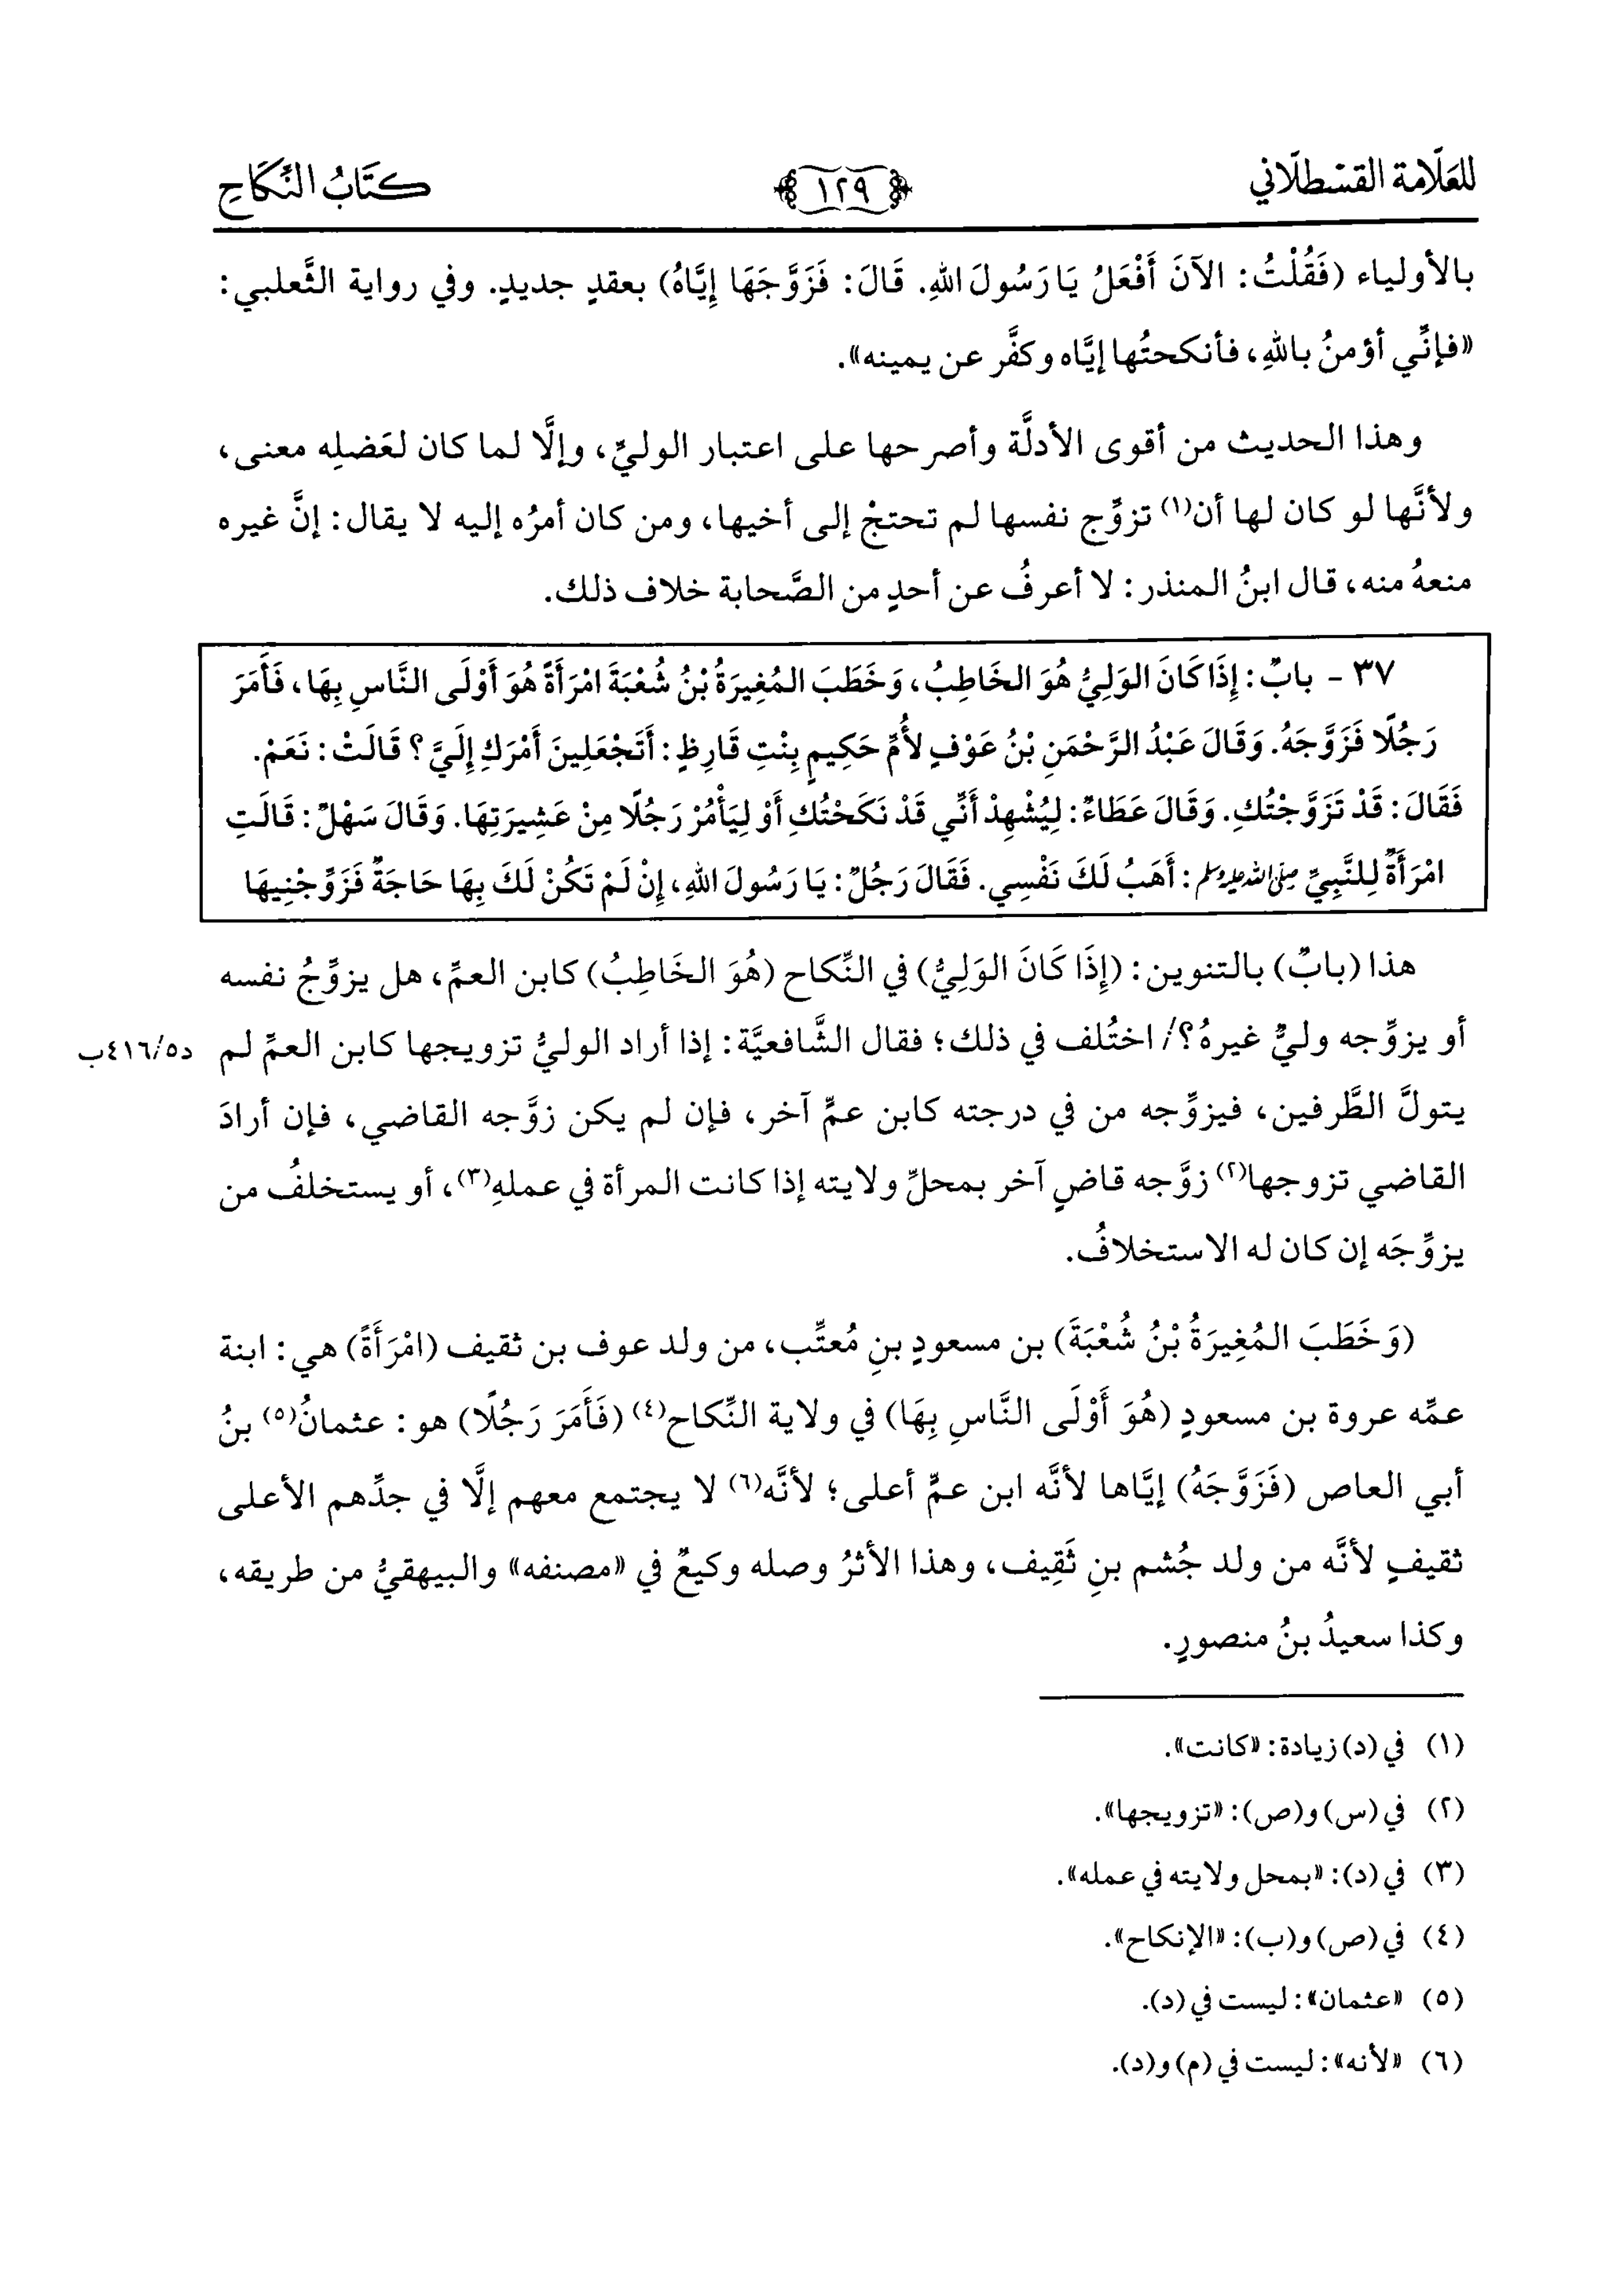 للعلّامة القسْطلّاني
١٢٩
كتَابُ النِّكَاحِ
بالأولياء (فَقُلْتُ: الآنَ أَفْعَلُ يَا رَسُولَ اللهِ. قَالَ: فَزَوَّجَهَا إِيَّاهُ) بعقدٍ جديدٍ. وفي رواية الثَّعلبي:
«فإنِّي أؤمنُ باللهِ، فأنكحتُها إيَّاه وكفَّر عن يمينه».
وهذا الحديث من أقوى الأدلَّة وأصرحها على اعتبار الوليِّ، وإلَّا لما كان لعَضلِه معنى،
ولأنَّها لو كان لها أن(١) تزوِّج نفسها لم تحتجْ إلى أخيها، ومن كان أمرُه إليه لا يقال: إنَّ غيره
منعهُ منه، قال ابنُ المنذر: لا أعرفُ عن أحدٍ من الصَّحابة خلاف ذلك.
٣٧ - بابٌ: إِذَا كَانَ الوَلِيُّ هُوَ الخَاطِبُ، وَخَطَبَ المُغِيرَةُ بْنُ شُعْبَةَ امْرَأَةً هُوَ أَوْلَى النَّاسِ بِهَا، فَأَمَرَ
رَجُلًا فَزَوَّجَهُ. وَقَالَ عَبْدُ الرَّحْمَنِ بْنُ عَوْفٍ لأُمِّ حَكِيمٍ بِنْتِ قَارِظٍ: أَتَجْعَلِينَ أَمْرَكِ إِلَيَّ؟ قَالَتْ: نَعَمْ.
فَقَالَ: قَدْ تَزَوَّجْتُكِ. وَقَالَ عَطَاءٌ: لِيُشْهِدْ أَنِّي قَدْ نَكَحْتُكِ أَوْ لِيَأْمُرْ رَجُلًا مِنْ عَشِيرَتِهَا. وَقَالَ سَهْلٌ: قَالَتِ
امْرَأَةٌ لِلنَّبِيِّ صلى الله عليه وسلم: أَهَبُ لَكَ نَفْسِي. فَقَالَ رَجُلٌ: يَا رَسُولَ اللهِ، إِنْ لَمْ تَكُنْ لَكَ بِهَا حَاجَةٌ فَزَوِّجْنِيهَا
هذا (بابٌ) بالتنوين: (إِذَا كَانَ الوَلِيُّ) في النِّكاح (هُوَ الخَاطِبُ) كابن العمِّ، هل يزوِّجُ نفسه
أو يزوِّجه وليٌّ غيرهُ؟/ اختُلف في ذلك؛ فقال الشَّافعيَّة: إذا أراد الوليُّ تزويجها كابن العمِّ لم
د٤١٦/٥ب
يتولَّ الطَّرفين، فيزوِّجه من في درجته كابن عمٍّ آخر، فإن لم يكن زوَّجه القاضي، فإن أرادَ
القاضي تزوجها(٢) زوَّجه قاضٍ آخر بمحلِّ ولايته إذا كانت المرأة في عملهِ(٣)، أو يستخلفُ من
يزوِّجَه إن كان له الاستخلافُ.
(وَخَطَبَ المُغِيرَةُ بْنُ شُعْبَةَ) بن مسعودٍ بنِ مُعتِّب، من ولد عوف بن ثقيف (امْرَأَةً) هي: ابنة
عمِّه عروة بن مسعودٍ (هُوَ أَوْلَى النَّاسِ بِهَا) في ولاية النِّكاح(٤) (فَأَمَرَ رَجُلًا) هو: عثمانُ(٥) بنُ
أبي العاص (فَزَوَّجَهُ) إيَّاها لأنَّه ابن عمٍّ أعلى؛ لأنَّه(٦) لا يجتمع معهم إلَّا في جدِّهم الأعلى
ثقيفٍ لأنَّه من ولد جُشم بنِ ثَقِيف، وهذا الأثرُ وصله وكيعٌ في «مصنفه» والبيهقيُّ من طريقه،
وكذا سعيدُ بنُ منصورٍ.
(١) في (د) زيادة: «كانت».
(٢) في (س) و(ص): «تزويجها».
(٣) في (د): «بمحل ولايته في عمله».
(٤) في (ص) و(ب): «الإنكاح».
(٥) «عثمان»: ليست في (د).
(٦) «لأنه»: ليست في (م) و(د).